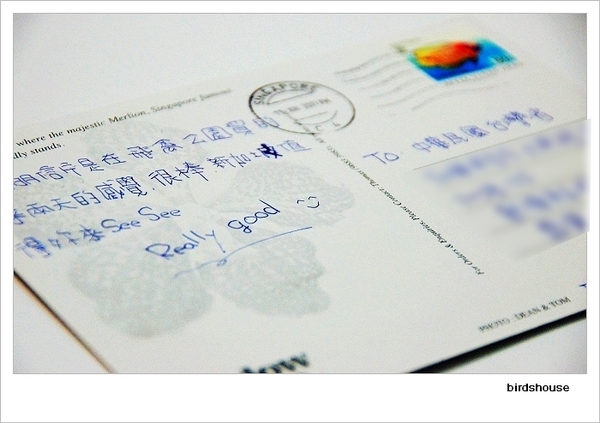 where the majestic Merlion, Singapore famous
lly stands.
SINGAPORE
明信片是在飛禽公園買的
兩天的感覺.很棒 新加坡值
得好來See See
Really good
To 中華民國台灣省
For Orders & Enquiries, Please Contact:
PHOTO: DEAN & TOM
low
birdshouse